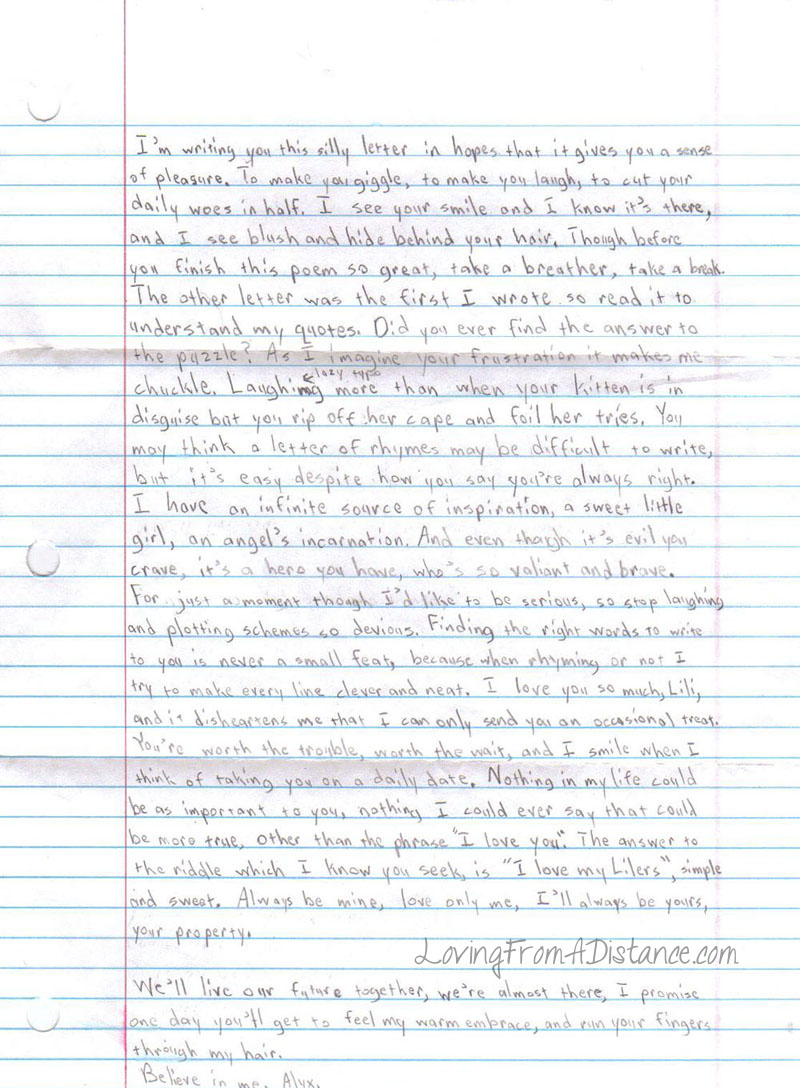 I'm writing you this silly letter in hopes that it gives you a sense
of pleasure. To make you giggle, to make you laugh, to cut your
daily woes in half. I see your smile and I know it's there,
and I see blush and hide behind your hair. Though before
you finish this poem so great, take a breather, take a break.
The other letter was the first I wrote so read it to
understand my quotes. Did you ever find the answer to
the puzzle? As I imagine your frustration it makes me
<lazy typo
chuckle. Laughing more than when your kitten is in
disguise but you rip off her cape and foil her tries. You
may think a letter of rhymes may be difficult to write,
but it's easy despite how you say you're always right.
I have an infinite source of inspiration, a sweet little
girl, an angel's incarnation. And even though it's evil you
crave, it's a hero you have, who's so valiant and brave.
For just a moment though I'd like to be serious, so stop laughing
and plotting schemes so devious. Finding the right words to write
to you is never a small feat, because when rhyming or not I
try to make every line clever and neat. I love you so much, Lili,
and it disheartens me that I can only send you an occasional treat.
You're worth the trouble, worth the wait, and I smile when I
think of taking you on a daily date. Nothing in my life could
be as important to you, nothing I could ever say that could
be more true, other than the phrase "I love you". The answer to
the riddle which I know you seek, is "I love my Lilers", simple
and sweet. Always be mine, love only me, I'll always be yours,
your property.
LovingFromADistance.com
We'll live our future together, we're almost there, I promise
one day you'll get to feel my warm embrace, and run your fingers
through my hair.
Believe in me, Alyx.